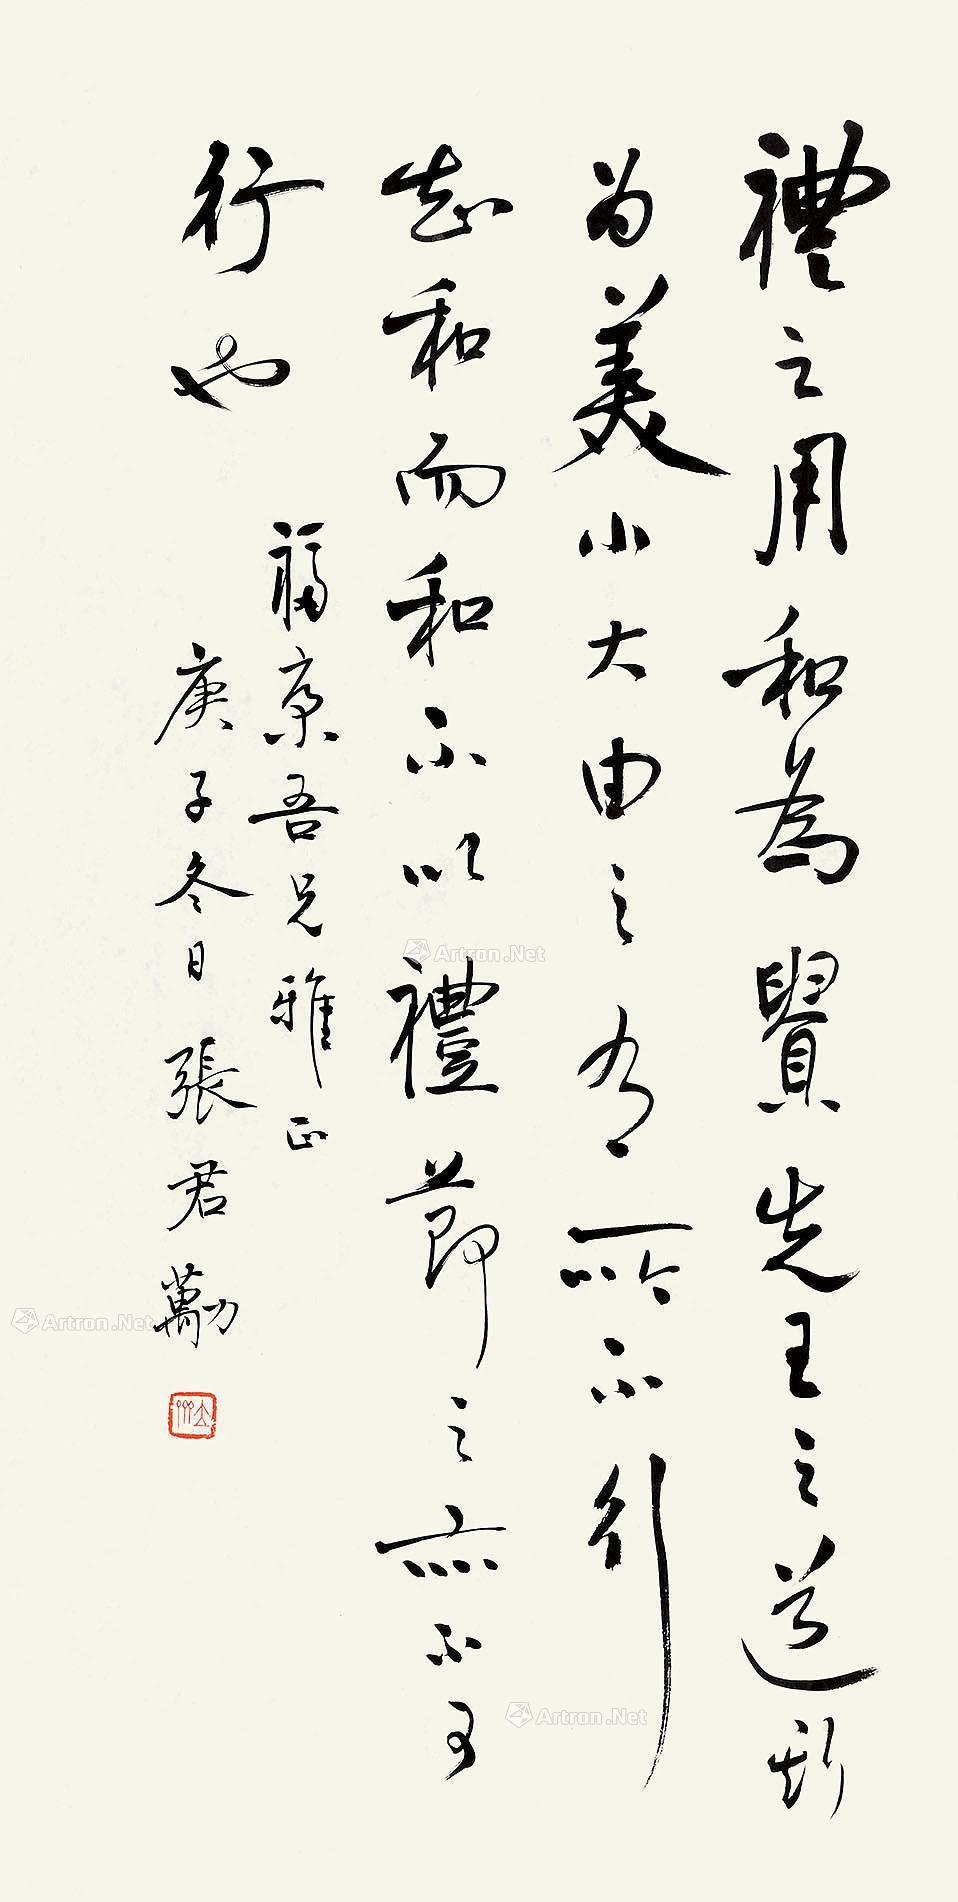 禮之用和為貴先王之道斯
為美小大由之有所不行
知和而和不以禮節之亦不可
行也
福原吾兄雅正
庚子冬日 張君勱
Artron.Net
Artron.Net
Artron.Net